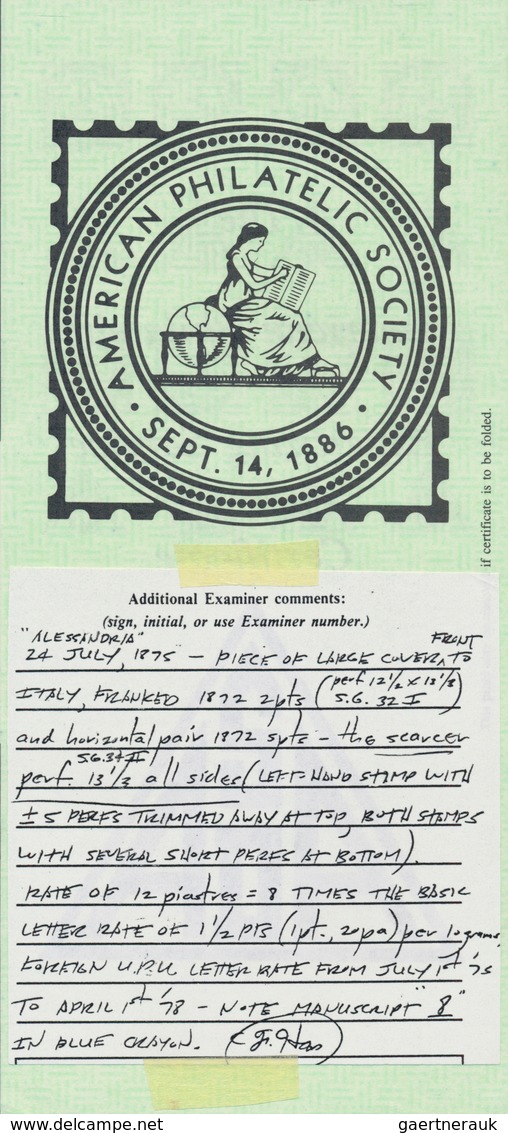 AMERICAN PHILATELIC SOCIETY
• SEPT. 14, 1886 •
if certificate is to be folded.
Additional Examiner comments:
(sign, initial, or use Examiner number.)
"ALESSANDRIA"
24 JULY, 1875 – PIECE OF LARGE COVER ^ FRONT TO
ITALY, FRANKED 1872 2pts (perf 12 1/2 X 13 1/3) S.G. 32 I
and horizontal pair 1872 5pts – the scarcer
S.G. 34 II
perf. 13 1/3 all sides (LEFT-HAND STAMP WITH
± 5 PERFS TRIMMED AWAY AT TOP, BOTH STAMPS
WITH SEVERAL SHORT PERFS AT BOTTOM).
RATE OF 12 piastres = 8 TIMES THE BASIC
LETTER RATE OF 1 1/2 PTS (1pt., 20pa) per 10 grams,
FOREIGN U.P.U LETTER RATE FROM JULY 1st '75
TO APRIL 1st '78 – NOTE MANUSCRIPT "8"
IN BLUE CRAYON.
www.delcampe.net
gaertnerauk